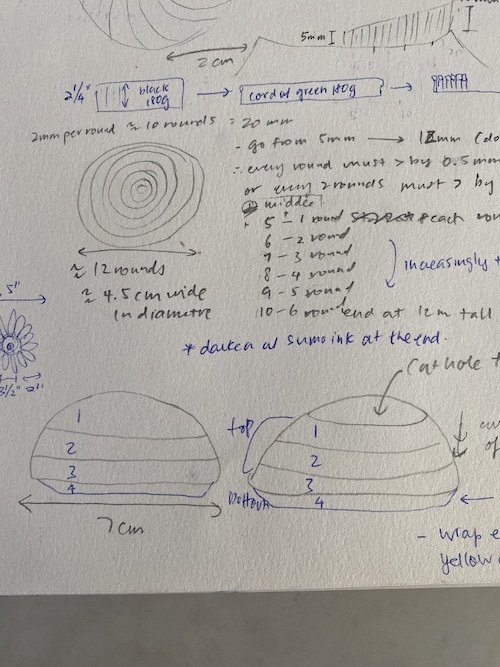 5mm
2cm
2 1/4" black 180g → cordial green 180g →
2mm per round ≈ 10 rounds = 20mm
- go from 5mm → 12mm (do
∴ every round must > by 0.5mm
or every 2 rounds must > by
① middle
5 - 1 round each
6 - 2 round
7 - 3 round
8 - 4 round
9 - 5 round
10 - 6 round end at 12m tall
increasingly
≈ 12 rounds
≈ 4.5cm wide
in diametre
* darken w/ sumo ink at the end.
5"
3 1/2" 2"
cut hole
top
1
2
3
4
1
2
3
4
bottom
7cm
of
- wrap e
yellow